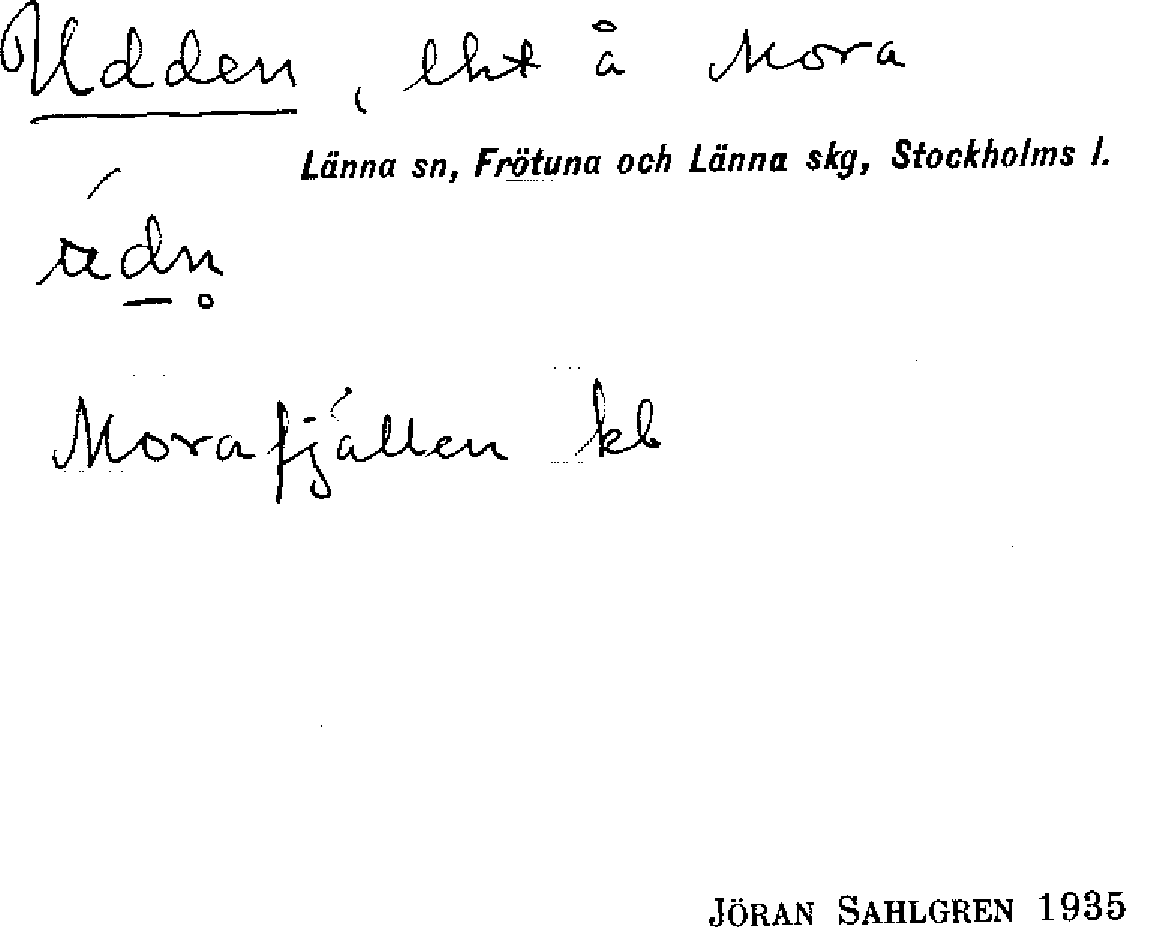 Udden, lht å Mora
Länna sn, Frötuna och Länna skg, Stockholms l.
Morafjällen kb
JÖRAN SAHLGREN 1935